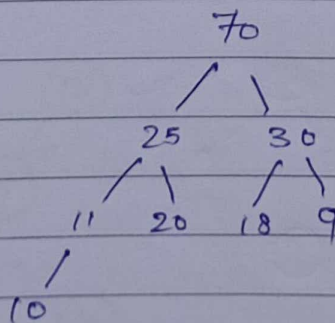 70
25 30
11 20 18 9
10